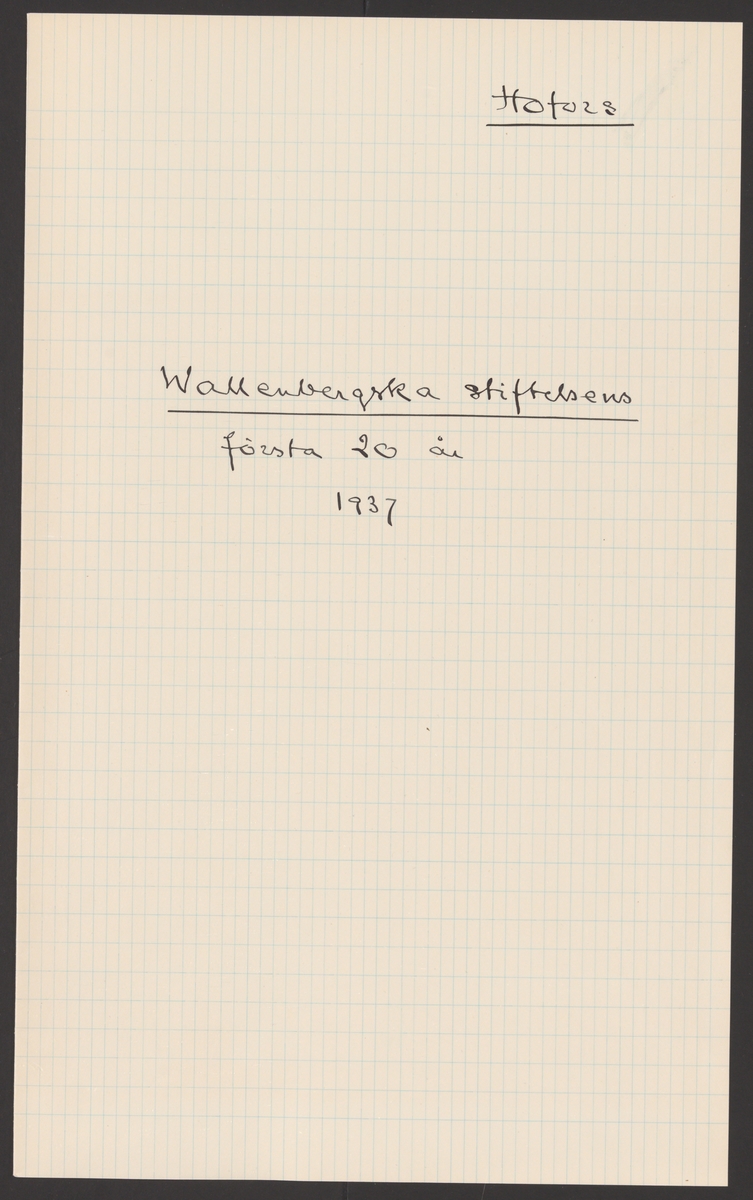 Hofors
Wallenbergska stiftelsens
första 20 år
1937